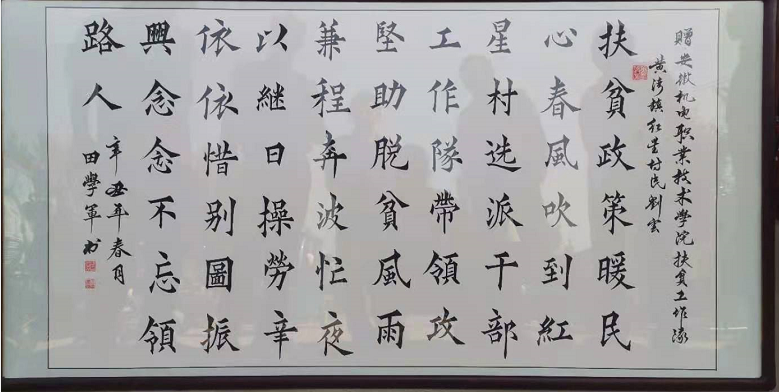 贈安徽机电职業技术学院扶贫工作隊
黄湾镇红星村民劉
扶貧政策暖民
心春風吹到紅
星村选派干部
工作隊帶領攻
堅助脱貧風雨
兼程奔波忙夜
以継日操勞辛
依依惜别圖振
興念念不忘領
路人
辛丑年春月
田學軍书